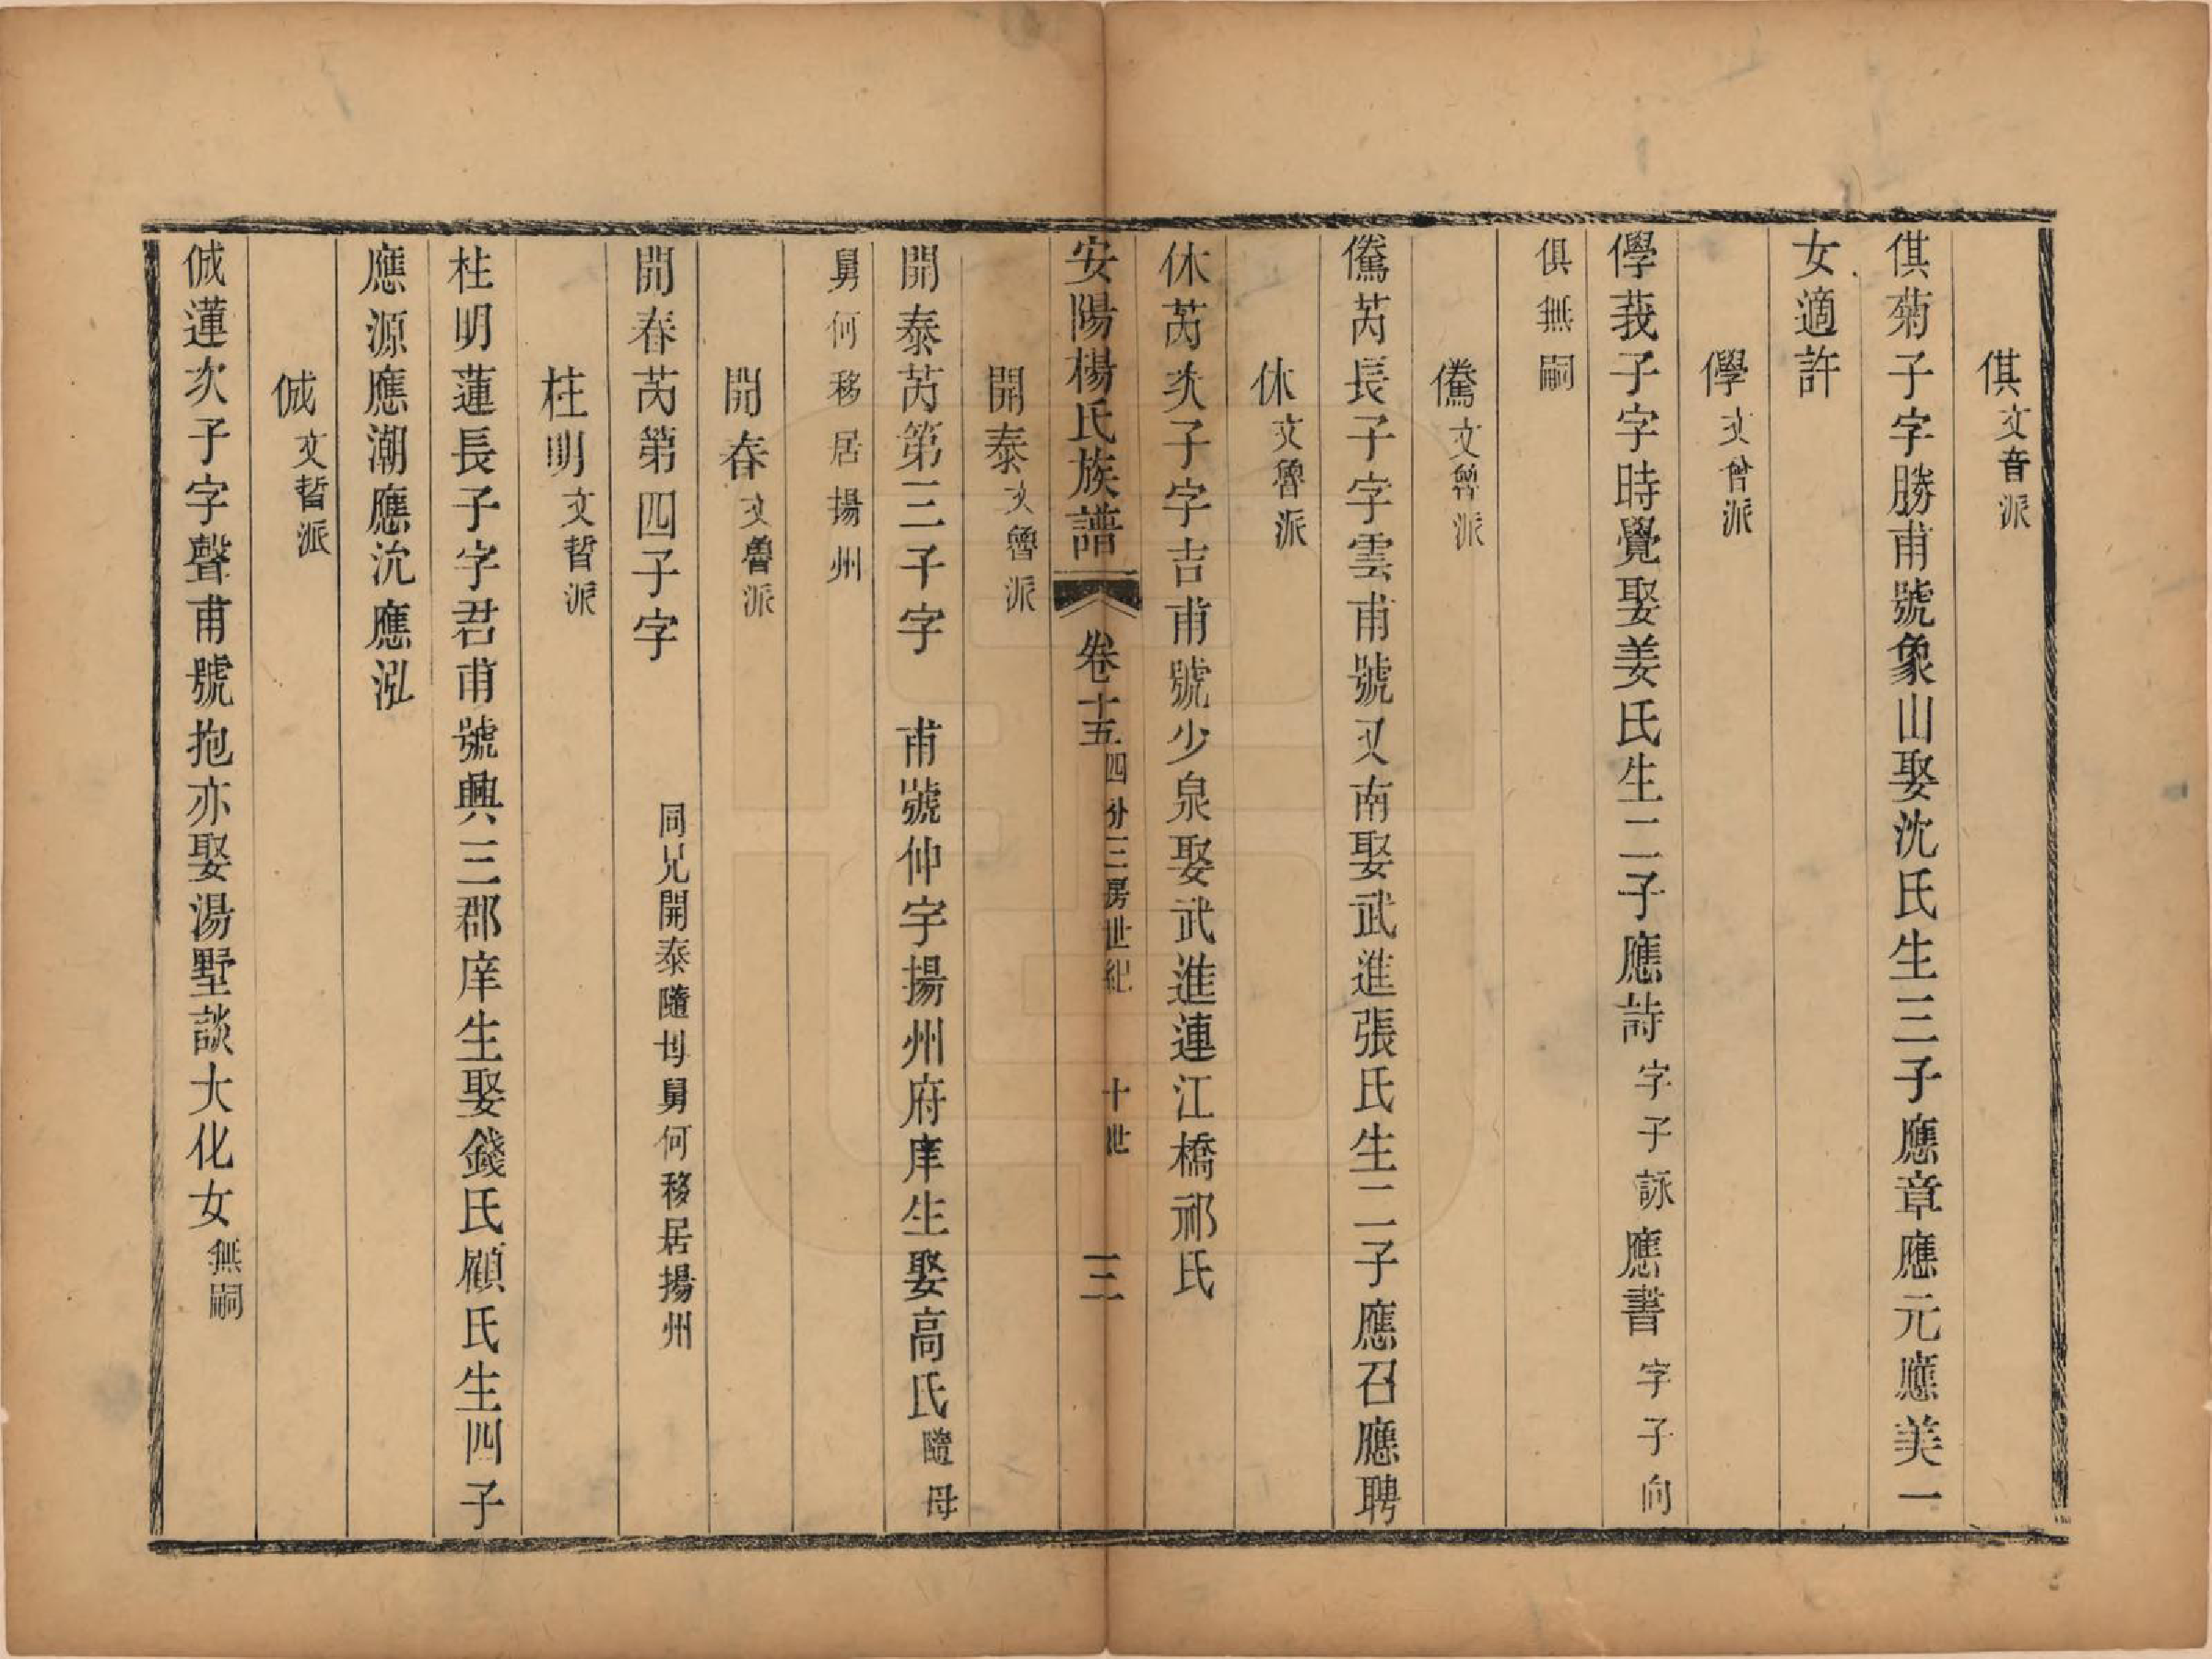 倛文音派
倛菊子字勝甫號象山娶沈氏生三子應章應元應美一
女適許
㶅文曾派
㶅莪子字時覺娶姜氏生二子應詩字子詠應書字子向
俱無嗣
文魯派
芮長子字雲甫號又南娶武進張氏生二子應召應聘
休文魯派
休芮次子字吉甫號少泉娶武進連江橋祁氏
安陽楊氏族譜 卷十五四分三房世紀 十世 三
開泰文魯派
開泰芮第三子字 甫號仲宇揚州府庠生娶高氏隨母
舅何移居揚州
開春文魯派
開春芮第四子字 同兄開泰隨母舅何移居揚州
柱明文晢派
柱明蓮長子字君甫號興三郡庠生娶錢氏顧氏生四子
應源應潮應沇應泓
㑘文晢派
㑘蓮次子字聲甫號抱亦娶湯墅談大化女無嗣